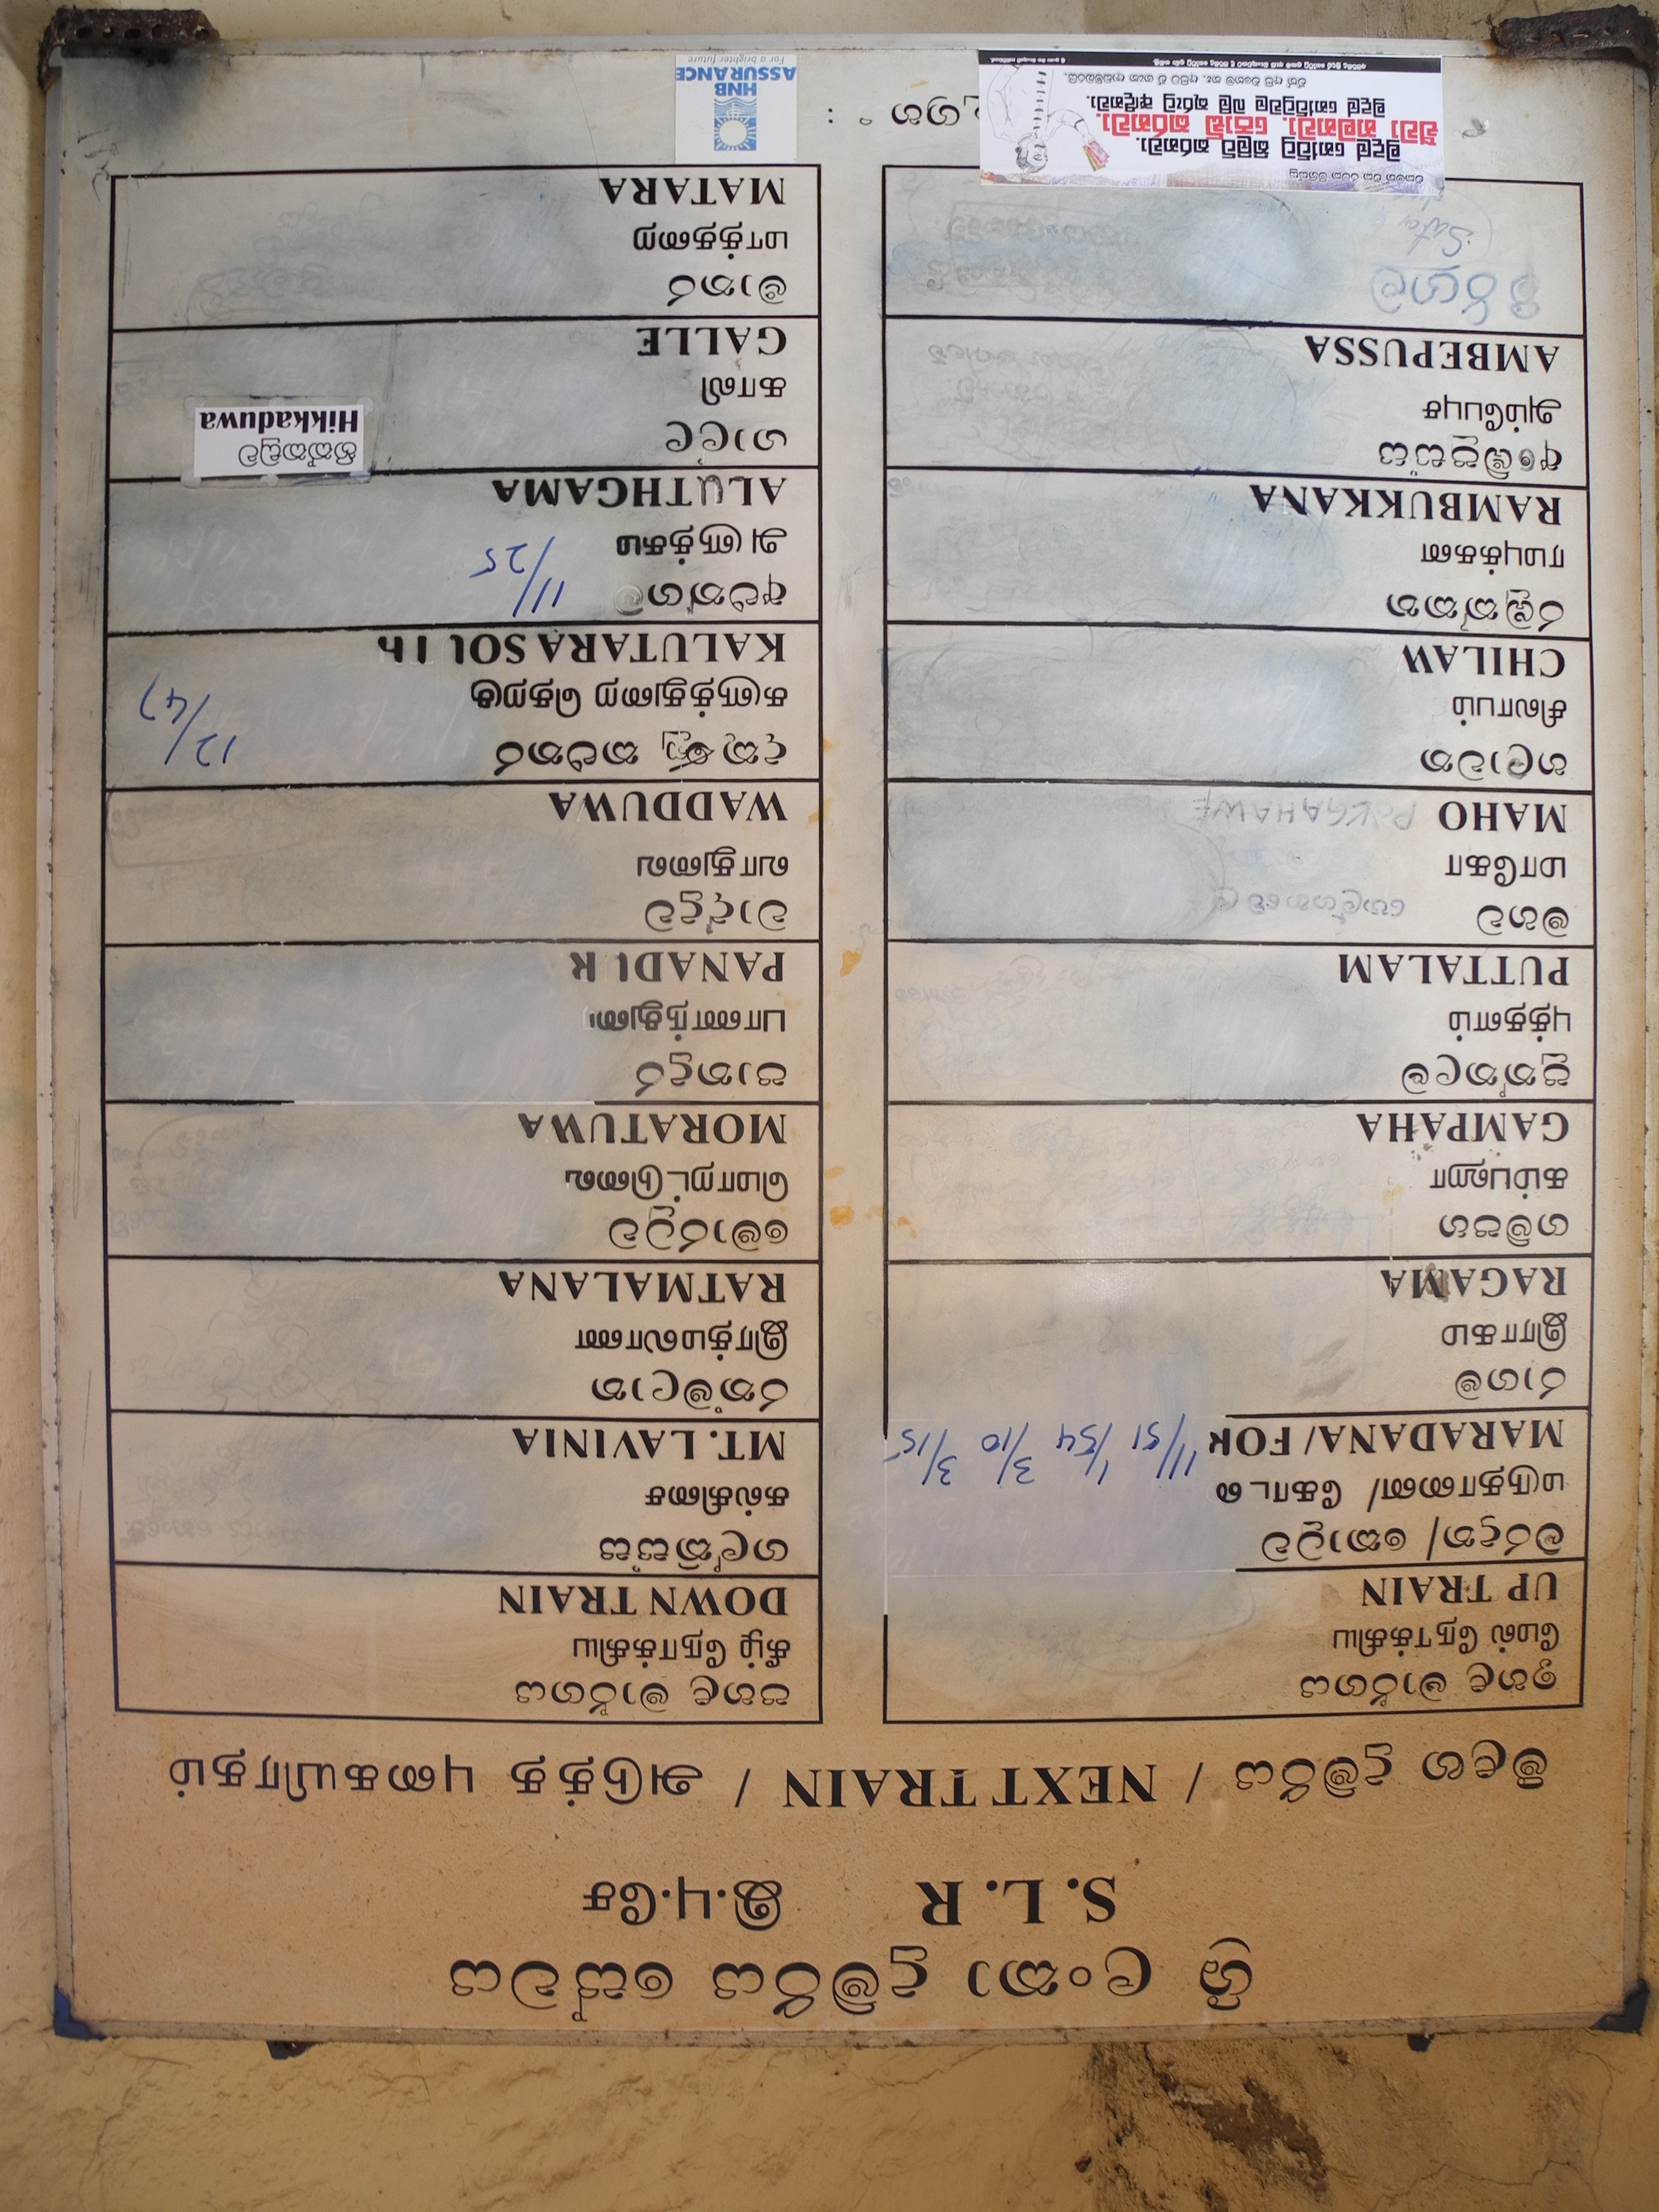 ශ්‍රී ලංකා දුම්රිය සේවය
S. L. R இ.பு.சே
මීළඟ දුම්රිය / NEXT TRAIN / அடுத்த புகையிரதம்
ඉහළ මාර්ගය
மேல் நோக்கிய
UP TRAIN
මරදාන/ කොටුව
மருதானை/ கோட
MARADANA/ FOR
11/51 1/54 3/10 3/15
රාගම
இராகம
RAGAMA
ගම්පහ
கம்பஹா
GAMPAHA
පුත්තලම
புத்தளம்
PUTTALAM
මහව
மாகோ
MAHO
POLGAHAWE
හලාවත
சிலாபம்
CHILAW
රඹුක්කන
ரம்புக்கன
RAMBUKKANA
අඹේපුස්ස
அம்பேபுச
AMBEPUSSA
පහළ මාර්ගය
கீழ் நோக்கிய
DOWN TRAIN
ගල්කිස්ස
கல்கிசை
MT. LAVINIA
රත්මලාන
இரத்மலானை
RATMALANA
මොරටුව
மொறட்டுவை
MORATUWA
පානදුර
பாணந்துறை
PANADUR
වාද්දුව
வாதுவை
WADDUWA
දකුණු කළුතර
களுத்துறை தெற்கு
KALUTARA SOUTH
12/47
අලුත්ගම
அளுத்கம
ALUTHGAMA
11/25
ගාල්ල
காலி
GALLE
හික්කඩුව
Hikkaduwa
මාතර
மாத்தறை
MATARA
HNB
ASSURANCE
For a brighter future
මුදල් නෝට්ටු කිලිටි කරනවා.
මුදල් නෝට්ටුවල මල් කුරුටු අඳිනවා.